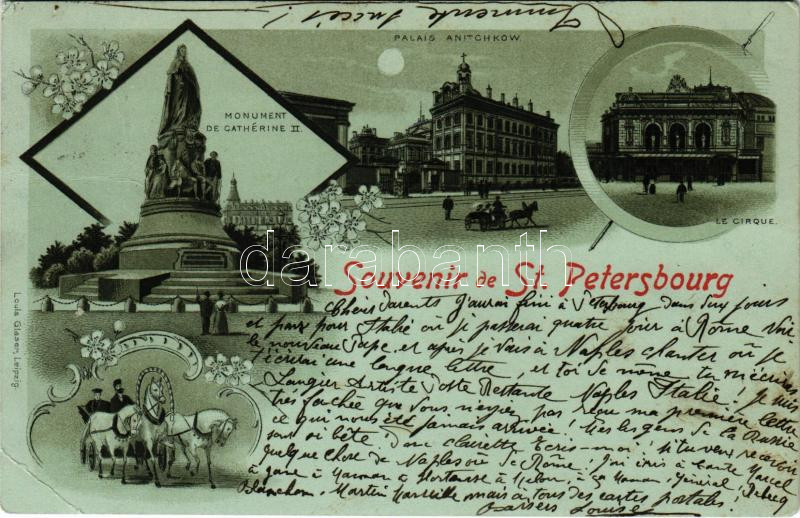 Immense succès!
PALAIS ANITCHKOW
MONUMENT
DE CATHÉRINE II.
LE CIRQUE.
darabanth.com
Souvenir de St. Petersbourg
Louis Glaser, Leipzig.
Chers Parents j'aurai fini à Peterbourg dans six jours
et pars pour Italie où je passerai quatre jour à Rome voir
le nouveau Pape, et après je vais à Naples chanter où je
t'écrirai une longue lettre, et toi de même tu m'écriras
Langier Artiste Poste Restante Naples Italie! je suis
très fachée que vous n'ayez pas reçu ma première lettre
ce qui nous est jamais arrivée! Mes les gens de la Russie
sont si bête! donc clairette Ecris-moi! si tu veux recevoir
quelque chose de Naples où de Rome. J'ai écris à Marcel
à Maman Hortense à
Martin Marseille mais à tous des cartes postales!
Baisers Louise